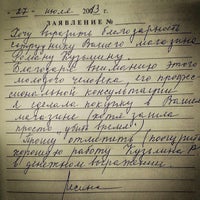 "27" июля 2013 г.
ЗАЯВЛЕНИЕ №
Хочу выразить благодарность
сотруднику Вашего магазина
Роману Кузьмину.
Благодаря вниманию этого
молодого человека, его профес-
сиональной консультации
я сделала покупку в Вашем
магазине (хотя зашла
просто убить время).
Прошу отметить (поощрить)
хорошую работу Кузьмина Р.
в денежном выражении.